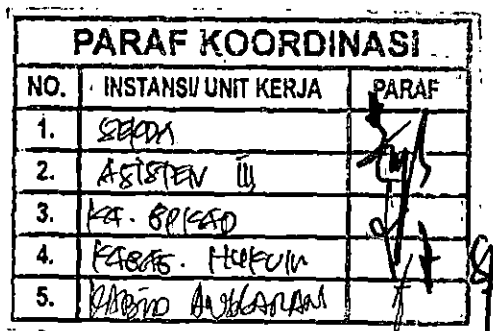 PARAF KOORDINASI
NO. INSTANSI/ UNIT KERJA PARAF
1. SEKDA
2. ASISTEN III
3. KA. BPKAD
4. KABAG. HUKUM
5. KABID ANGGARAN